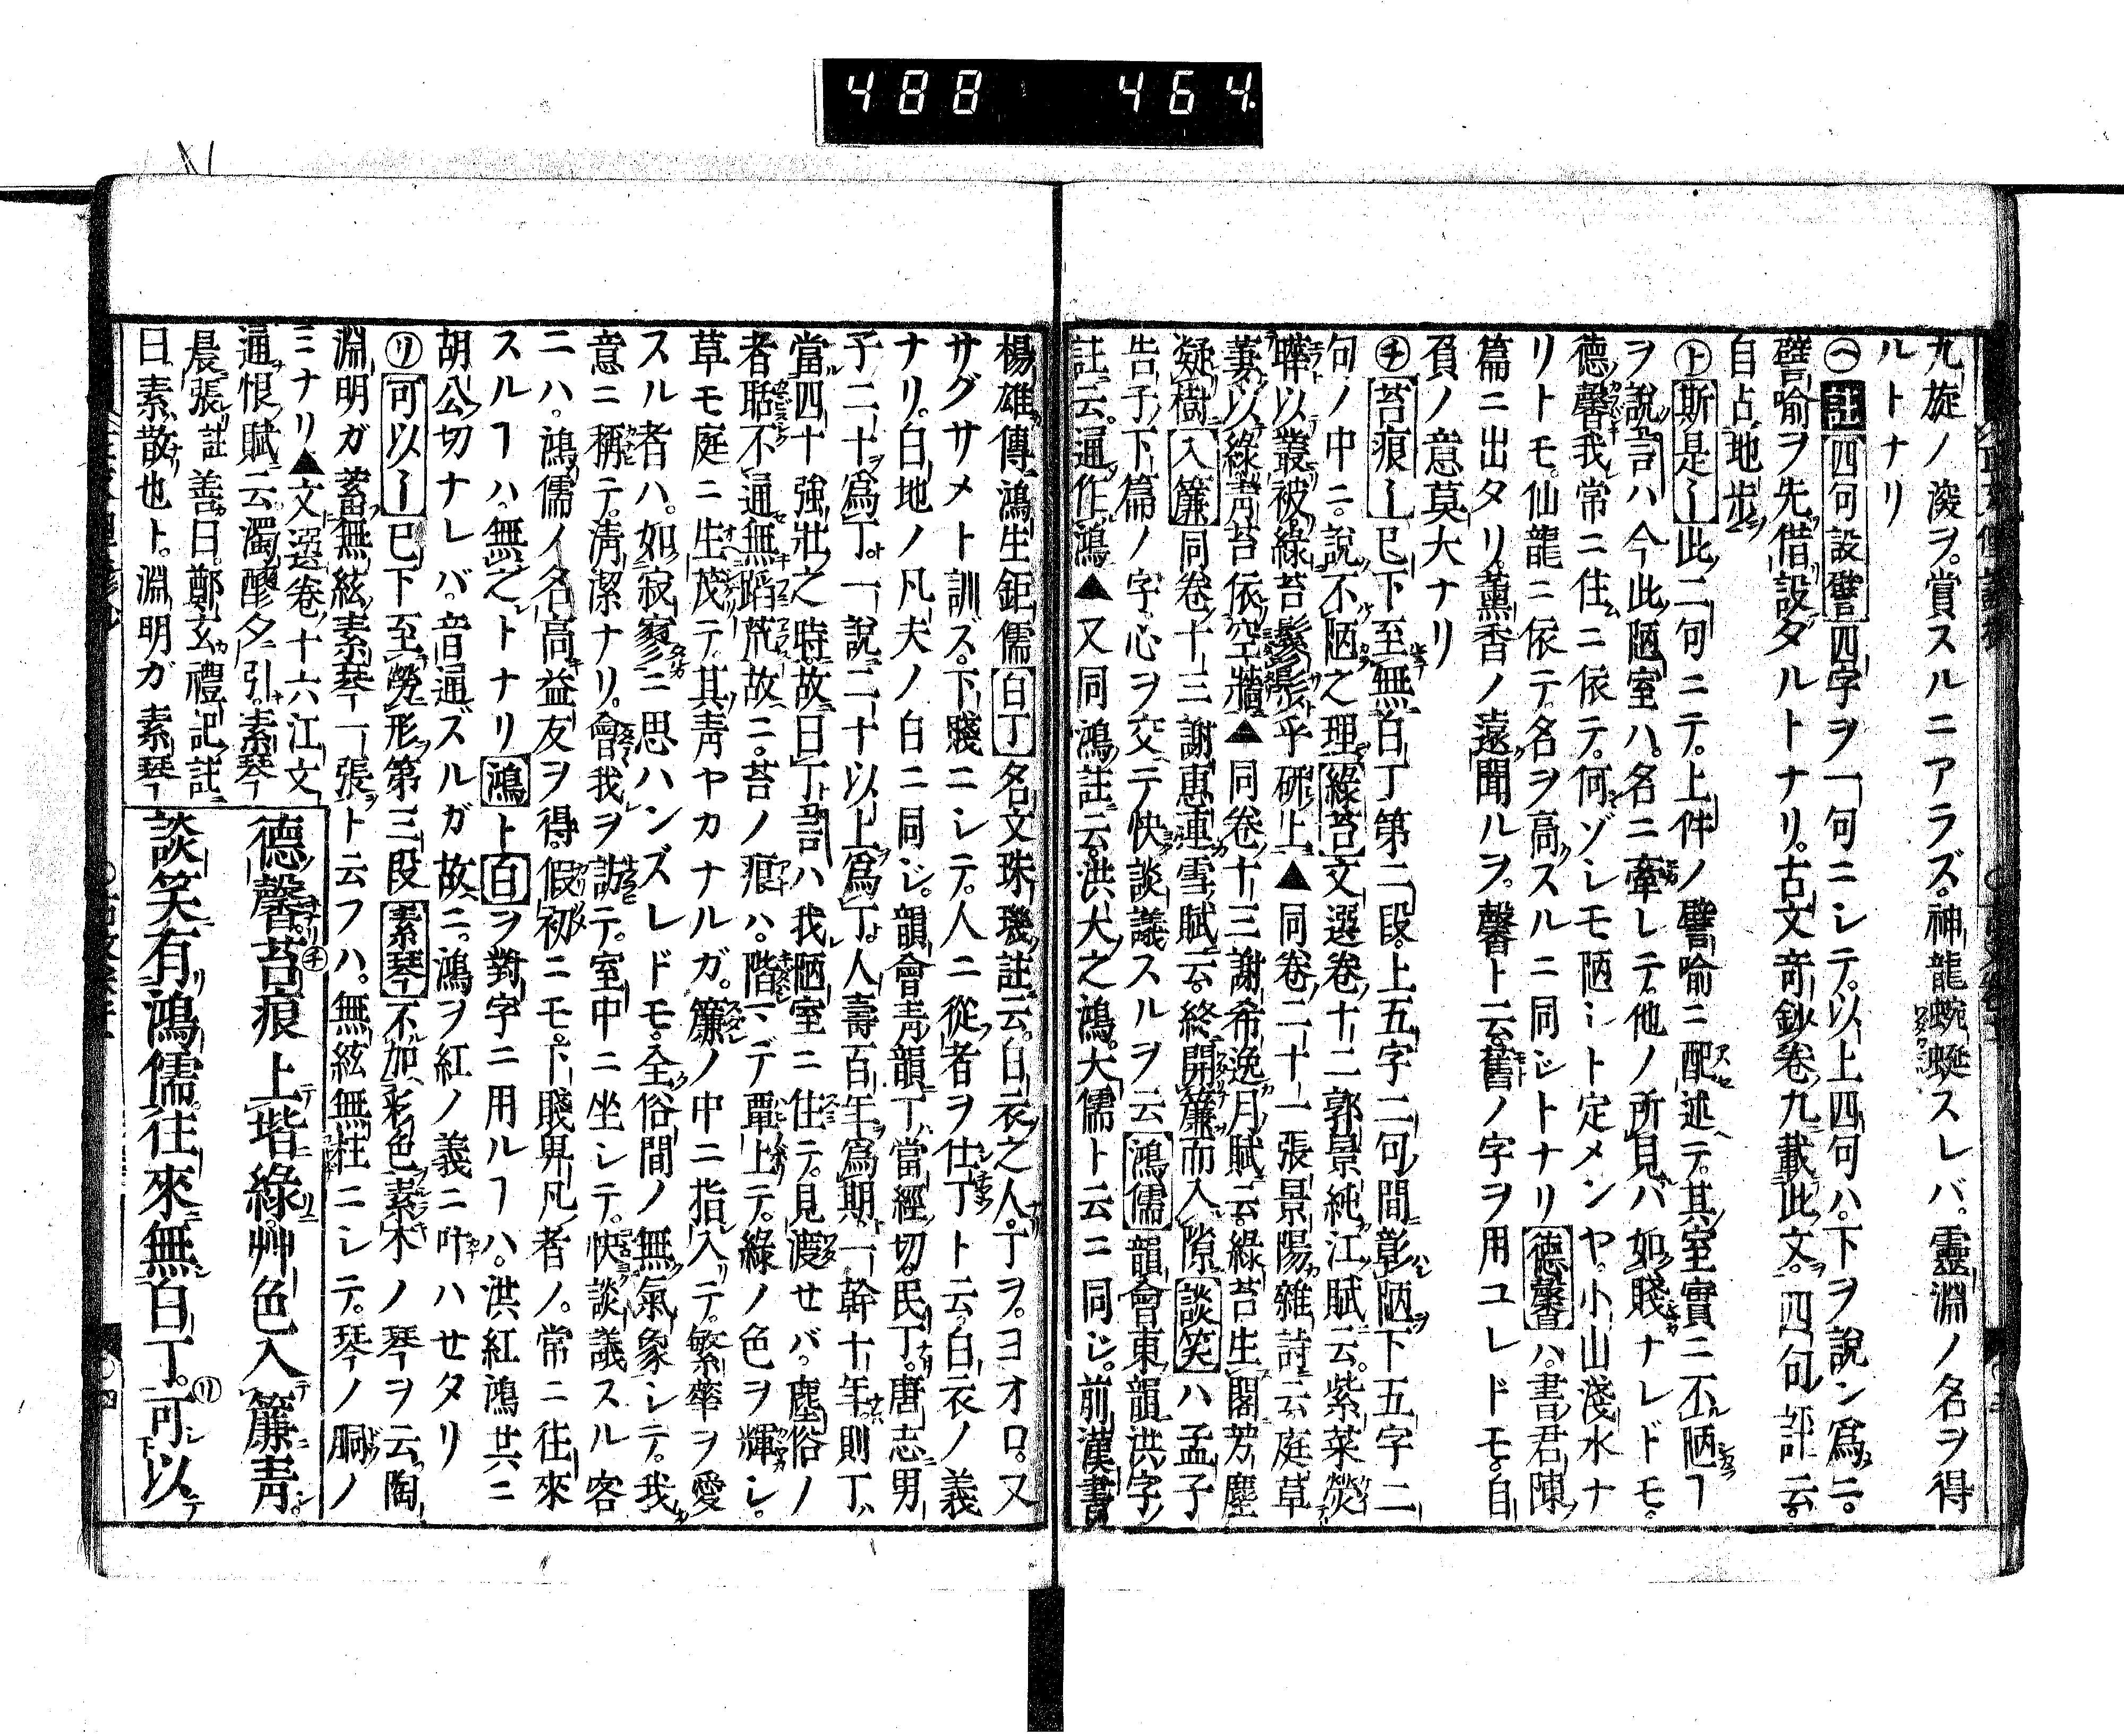 488 464.
九旋ノ深ヲ。賞スルニアラズ。神龍蜿蜒スレバ。靈淵ノ名ヲ得
ルトナリ
㋬註四句設譬四字ヲ一句ニシテ。以上四句ハ。下ヲ說ン爲ニ。
譬喻ヲ先借設タルトナリ。古文奇鈔卷九載此文。四句評云。
自占地步
㋣斯是〡此二句ニテ。上件ノ譬喻ニ配述テ。其室實ニ不陋ヿ
ヲ說言ハ今此陋室ハ。名ニ牽レテ。他ノ所見ハ如賤ナレドモ。
德馨我常ニ住ニ依テ。何ゾシモ陋シト定メンヤ。小山淺水ナ
リトモ。仙龍ニ依テ。名ヲ高スルニ同シトナリ德馨ハ。書君陳
篇ニ出タリ。薰香ノ遠聞ルヲ。馨ト云。舊ノ字ヲ用ユレドモ。自
負ノ意莫大ナリ
㋠苔痕〡已下至無白丁第二段。上五字二句間彰陋下五字二
句ノ中ニ。說不陋之理綠苔文選卷十二郭景純江賦云。紫菜熒
曄以叢被綠苔鬖髿乎研上▲同卷二十一張景陽雜詩云庭草
萋以綠靑苔依空牆▲同卷十三謝希逸月賦云。綠苔生閣芳塵
凝樹入簾同卷十三謝惠連雪賦云。終開簾而入隙談笑ハ孟子
告子下篇ノ字。心ヲ交テ快談議スルヲ云鴻儒韻會東韻洪字
註云。通作鴻▲又同鴻註云洪大之鴻。大儒ト云ニ同シ。前漢書
楊雄傳鴻生鉅儒白丁名文珠璣註云。白衣之人。丁ヲ。ヨオロ。又
サグサメト訓ズ。下賤ニシテ。人ニ從者ヲ仕丁ト云。白衣ノ義
ナリ。白地ノ凡夫ノ白ニ同シ。韻會靑韻丁。當經切。民丁。唐志男
子二十爲丁一說二十以上爲丁。人壽百年爲期。一幹十年。則丁
當四十強壯之時。故曰丁言ハ我陋室ニ住テ。見渡セバ。塵俗ノ
者聒不通無蹈荒故ニ。苔ノ痕ハ。階マデ覃上テ。綠ノ色ヲ輝シ。
草モ庭ニ生茂テ。其靑ヤカナルガ。簾ノ中ニ指入テ。繁華ヲ愛
スル者ハ。如寂寥ニ思ハンズレドモ。全俗間ノ無氣象シテ。我
意ニ稱テ。淸潔ナリ。會我ヲ訪テ。室中ニ坐シテ。快談議スル客
ニハ。鴻儒ノ名高益友ヲ得。假初ニモ。下賤卑凡者ノ。常ニ往來
スルヿハ。無之トナリ鴻ト白ヲ對字ニ用ルヿハ。洪紅鴻共ニ
胡公切ナレバ。音通ズルガ故ニ。鴻ヲ紅ノ義ニ叶ハセタリ
㋷可以〡已下至勞形第三段素琴不加彩色素木ノ琴ヲ云。陶
淵明ガ蓄無絃素琴一張ト云フハ。無絃無柱ニシテ。琴ノ胴ノ
ミナリ▲文選卷十六江文
通恨賦云。濁醪夕引。素琴
晨張註善曰。鄭玄禮記註
曰素散也ト。淵明ガ素琴
德馨。㋠苔痕上堦綠。艸色入簾靑。
談笑有鴻儒。往來無白丁。㋷可以